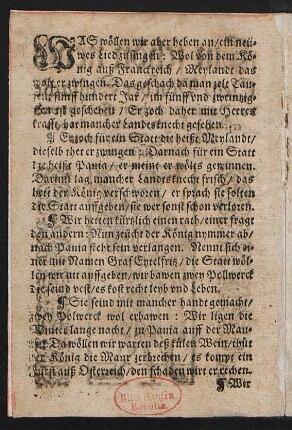 WAS wöllen wir aber heben an/ein neu-
wes Liedzusingen: Wol von dem Kö-
nig auß Franckreich / Meylandt das
wolt er zwingen. Das geschach da man zelt Tau-
sent fünff hundert Jar / im fünff vnd zweintzig-
sten ist geschehen / Er zoch daher mit Heeres
krafft/ hat mancher Landsknecht gesehen.
¶ Er zoch für ein Statt die heißt Meylandt/
dieselb thet er zwingen: Da zoch für ein Statt
die heißt Pauia/ er meint er wölts gewinnen.
Darinn lag mancher Landsknecht frisch/ das
het der König verschworen / er sprach sie solten
die Statt auffgeben/ sie wer sonst schon verloren.
¶ Wir hetten kürtzlich einen rath/einer fragt
den andern: Nun zeücht der König nymmer ab/
nach Pauia steht sein verlangen. Nennt sich ei-
ner mit Namen Graf Eytelfritz/ die Statt wöl-
len wir nit auffgeben/wir bawen zwey Pollwerck
die seind vest/es kost recht leyb vnd Leben.
¶ Sie seind mit mancher handt gemacht/
zwey Polwerck wol erbawen: Wir ligen die
Winter lange nacht/ zu Pauia auff der Mau-
ren. Da wöllen wir warten deß külen Wein/thut
der König die Maur zerbrechen/ es kompt ein
Fürst auß Osterreich/den schaden wirt er rechen.
¶ Wir
Bibl. Regia
Berolin.